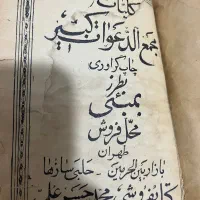 کلیات
جمع الدعوات کبیر
چاپ گراوری
بطرز
بمبئی
محل فروش
طهران
بازار بین الحرمین - حلبی سازها
کتابفروشی محمد حسن علمی